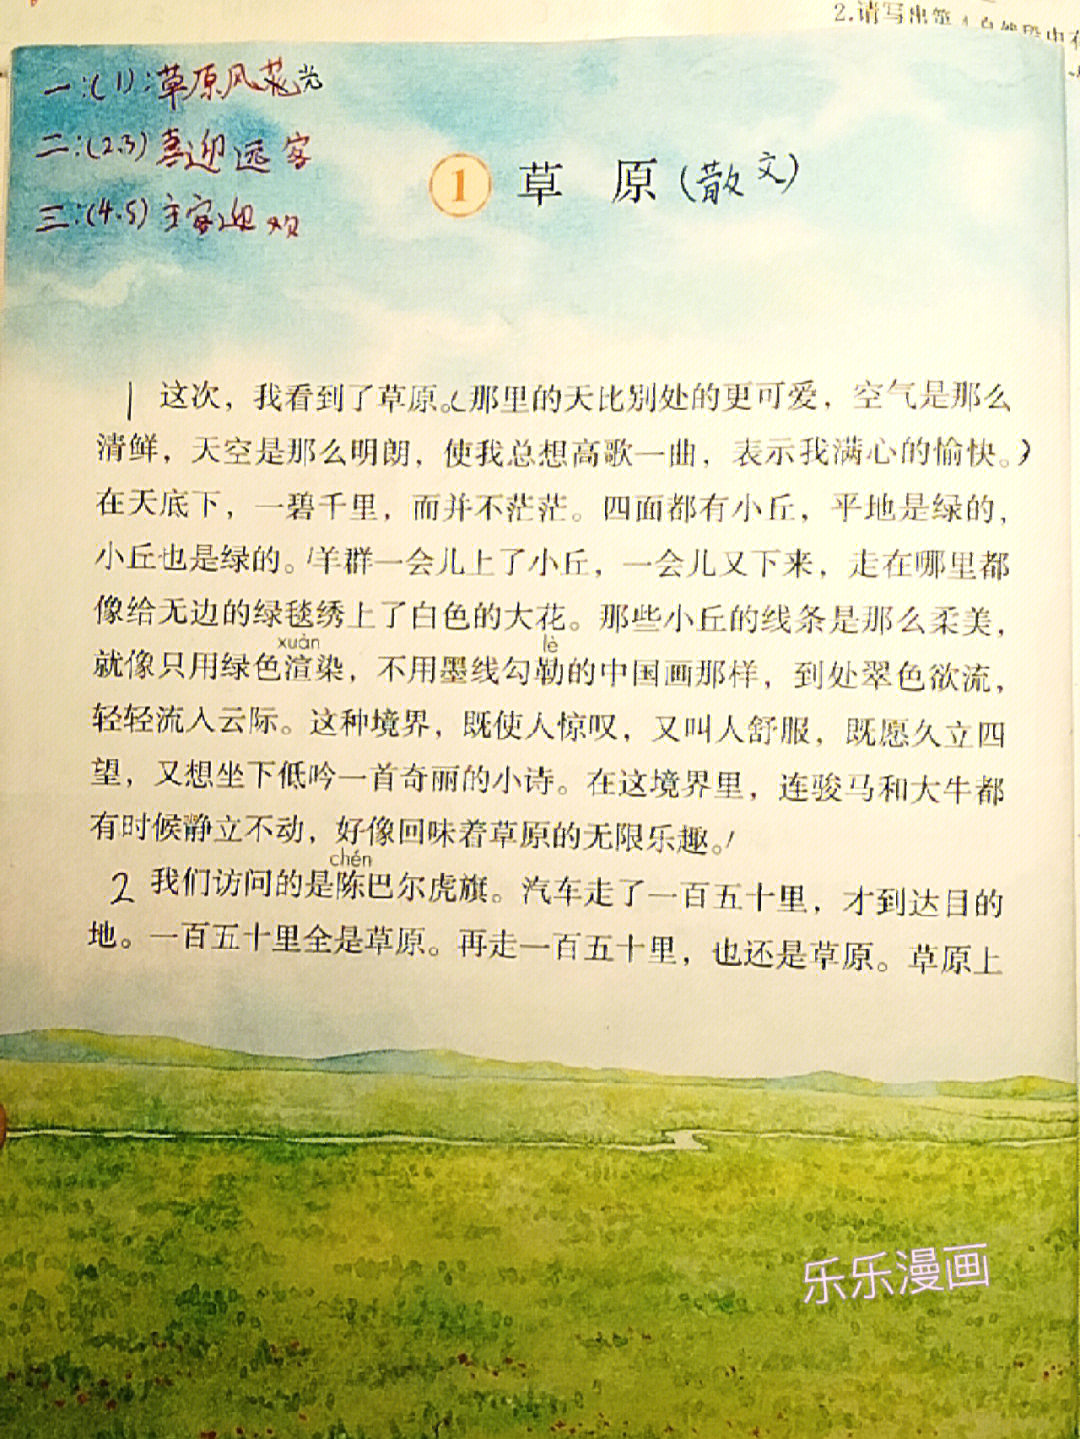 2.请写出第4自然段中有
一:(1):草原风光
二:(2.3)喜迎远客
三:(4.5)主客迎欢
1 草 原(散文)
1 这次，我看到了草原。(那里的天比别处的更可爱，空气是那么
清鲜，天空是那么明朗，使我总想高歌一曲，表示我满心的愉快。)
在天底下，一碧千里，而并不茫茫。四面都有小丘，平地是绿的，
小丘也是绿的。/羊群一会儿上了小丘，一会儿又下来，走在哪里都
像给无边的绿毯绣上了白色的大花。那些小丘的线条是那么柔美，
xuàn lè
就像只用绿色渲染，不用墨线勾勒的中国画那样，到处翠色欲流，
轻轻流入云际。这种境界，既使人惊叹，又叫人舒服，既愿久立四
望，又想坐下低吟一首奇丽的小诗。在这境界里，连骏马和大牛都
有时候静立不动，好像回味着草原的无限乐趣。/
chén
2 我们访问的是陈巴尔虎旗。汽车走了一百五十里，才到达目的
地。一百五十里全是草原。再走一百五十里，也还是草原。草原上
乐乐漫画